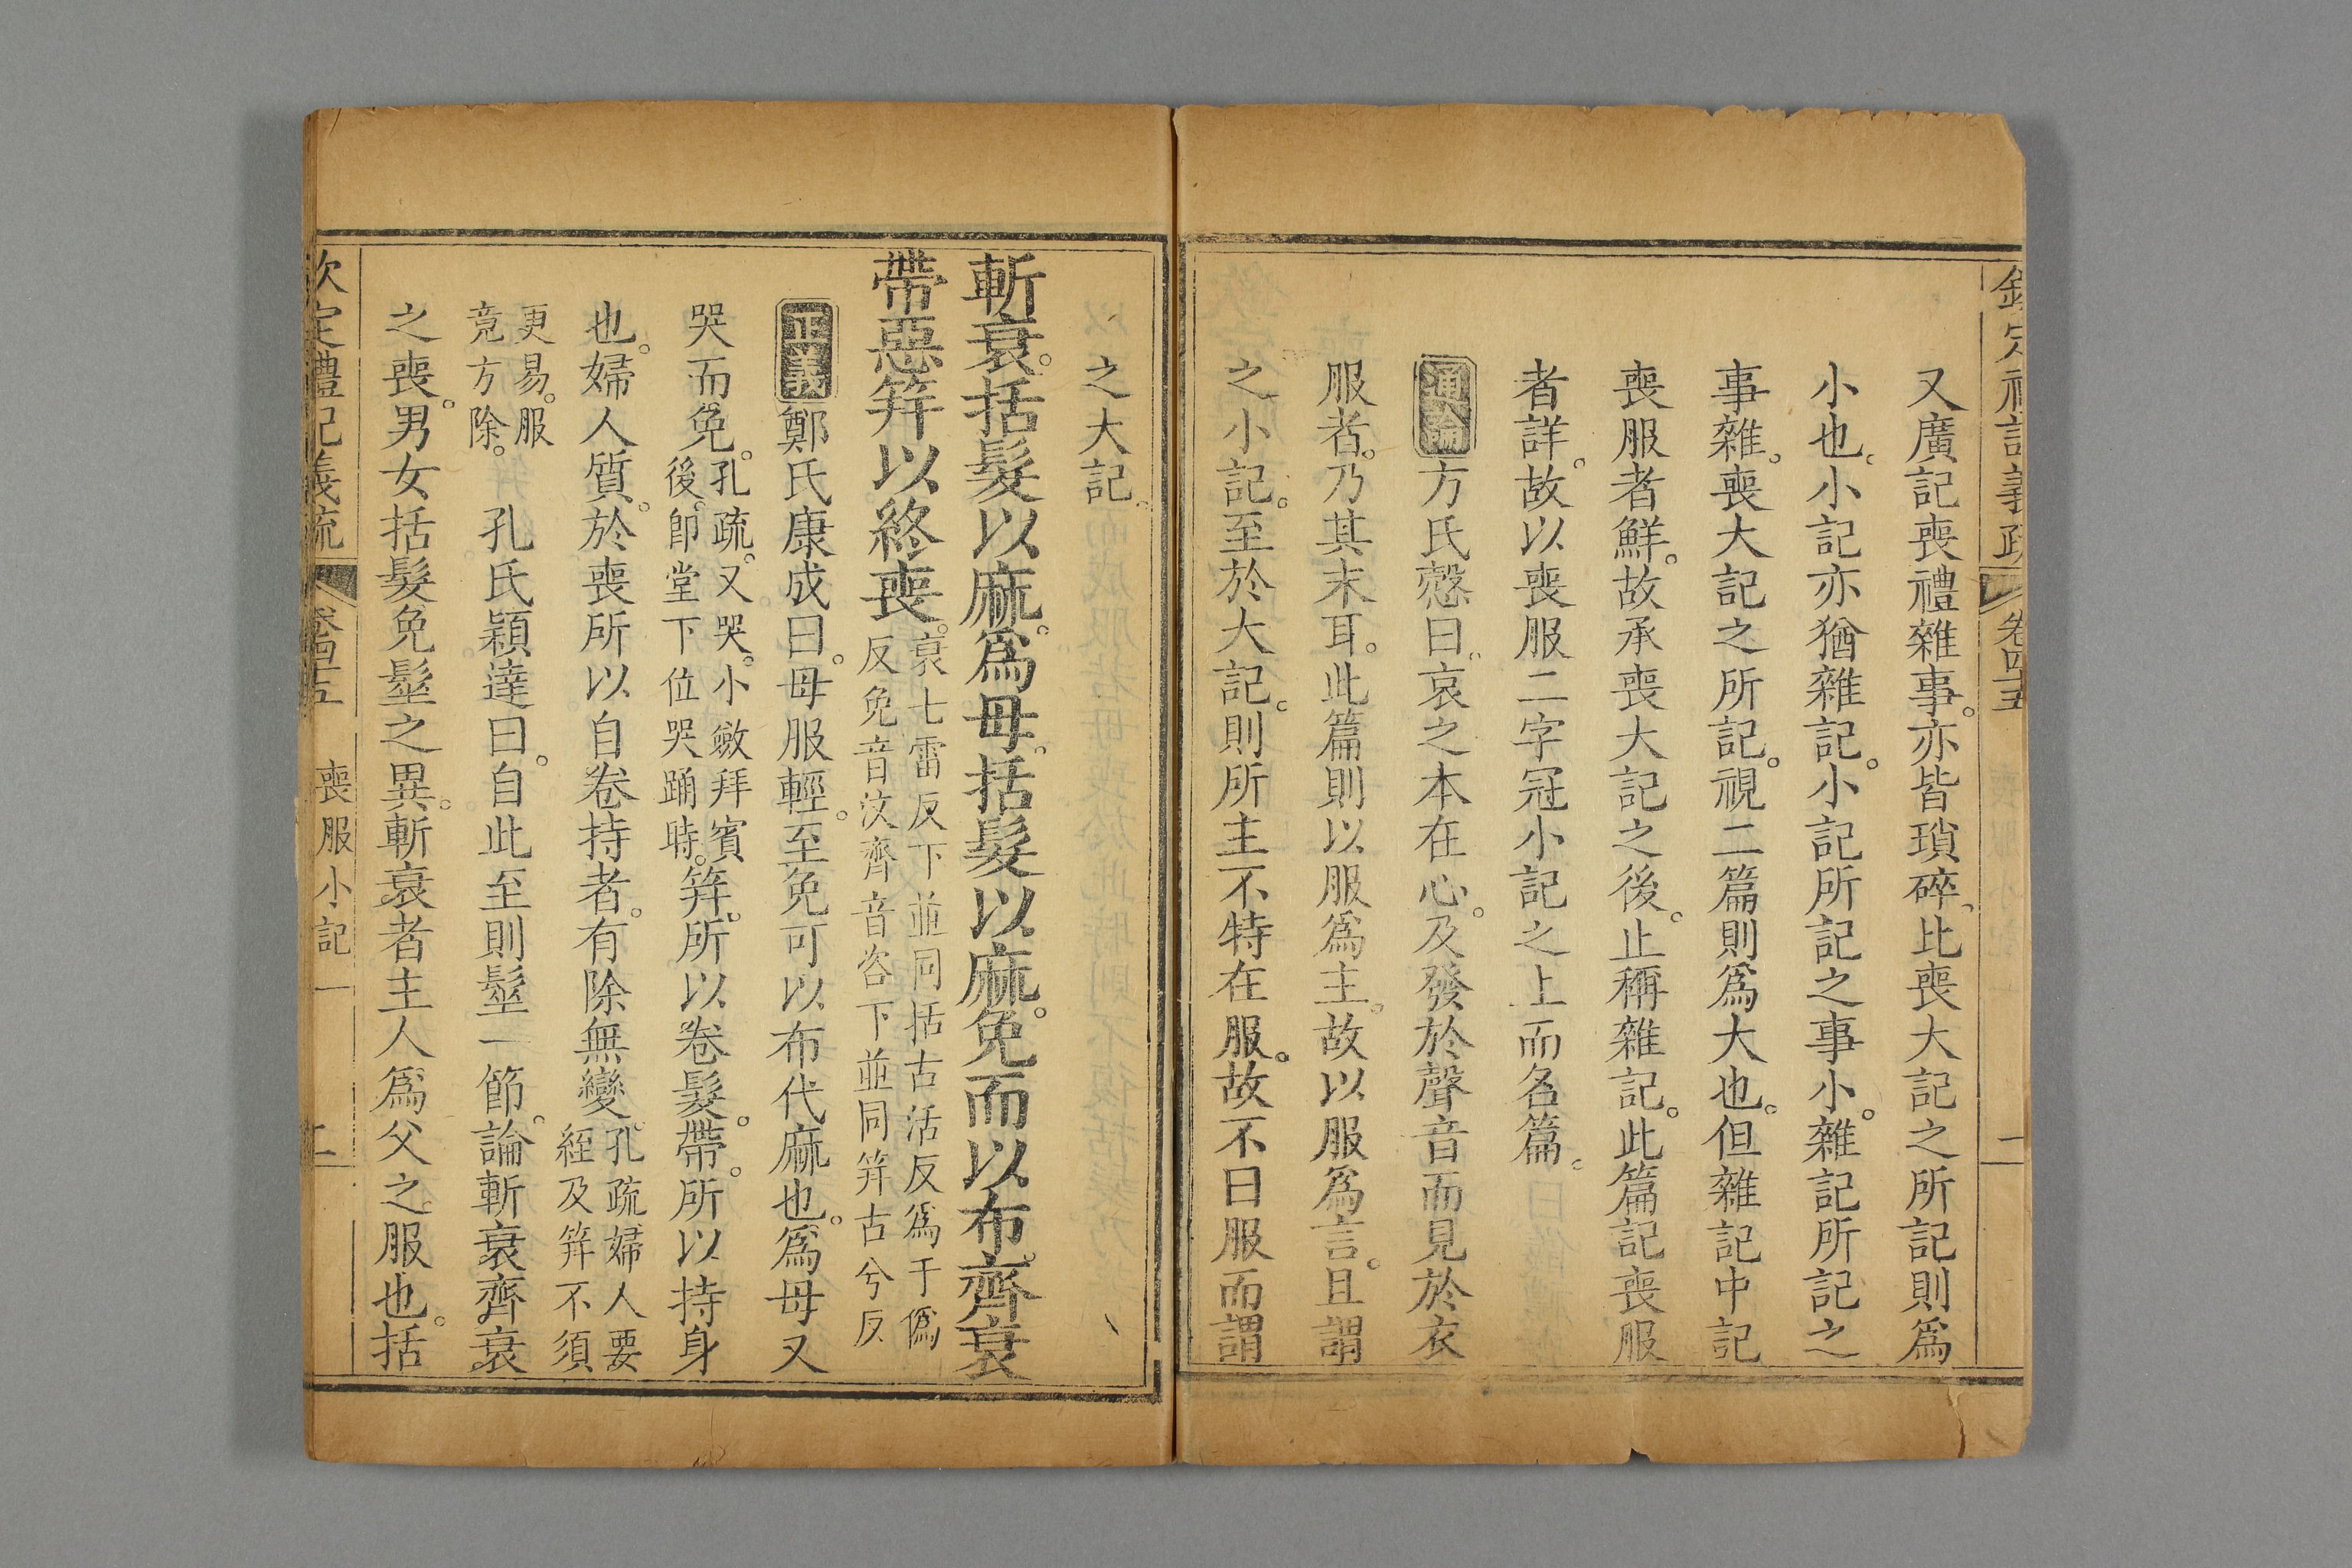 欽定禮記義疏 卷四十五 一
又廣記喪禮雜事。亦皆瑣碎、比喪大記之所記則爲
小也。小記亦猶雜記。小記所記之事小。雜記所記之
事雜。喪大記之所記。視二篇則爲大也。但雜記中記
喪服者鮮。故承喪大記之後。止稱雜記。此篇記喪服
者詳。故以喪服二字冠小記之上而名篇。
通論 方氏愨曰。哀之本在心。及發於聲音而見於衣
服者。乃其末耳。此篇則以服爲主。故以服爲言。且謂
之小記。至於大記。則所主不特在服。故不曰服而謂
之大記。
斬衰。括髮以麻。爲母。括髮以麻。免而以布。齊衰
帶惡笄以終喪。衰七雷反下並同括古活反爲于僞
反免音汶齊音咨下並同笄古兮反
正義 鄭氏康成曰。母服輕。至免可以布代麻也。爲母又
哭而免。孔疏。又哭。小斂拜賓
後。卽堂下位哭踊時。笄。所以卷髮。帶。所以持身
也。婦人質。於喪所以自卷持者。有除無變。孔疏婦人要
絰及笄不須
更易。服
竟方除。 孔氏穎達曰。自此至則髽一節。論斬衰齊衰
之喪。男女括髮免髽之異。斬衰者主人爲父之。服也。括
欽定禮記義疏 卷四十五 喪服小記一 二